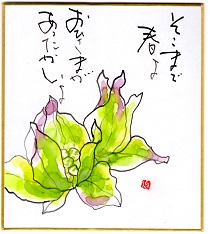 そこまで
春よ
おひさまが
あったかいよ